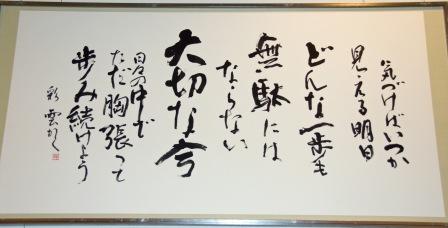 気づけばいつか
見える明日
どんな一歩も
無駄には
ならない
大切な今
日々の中で
ただ胸張って
歩み続けよう
彩雲かく